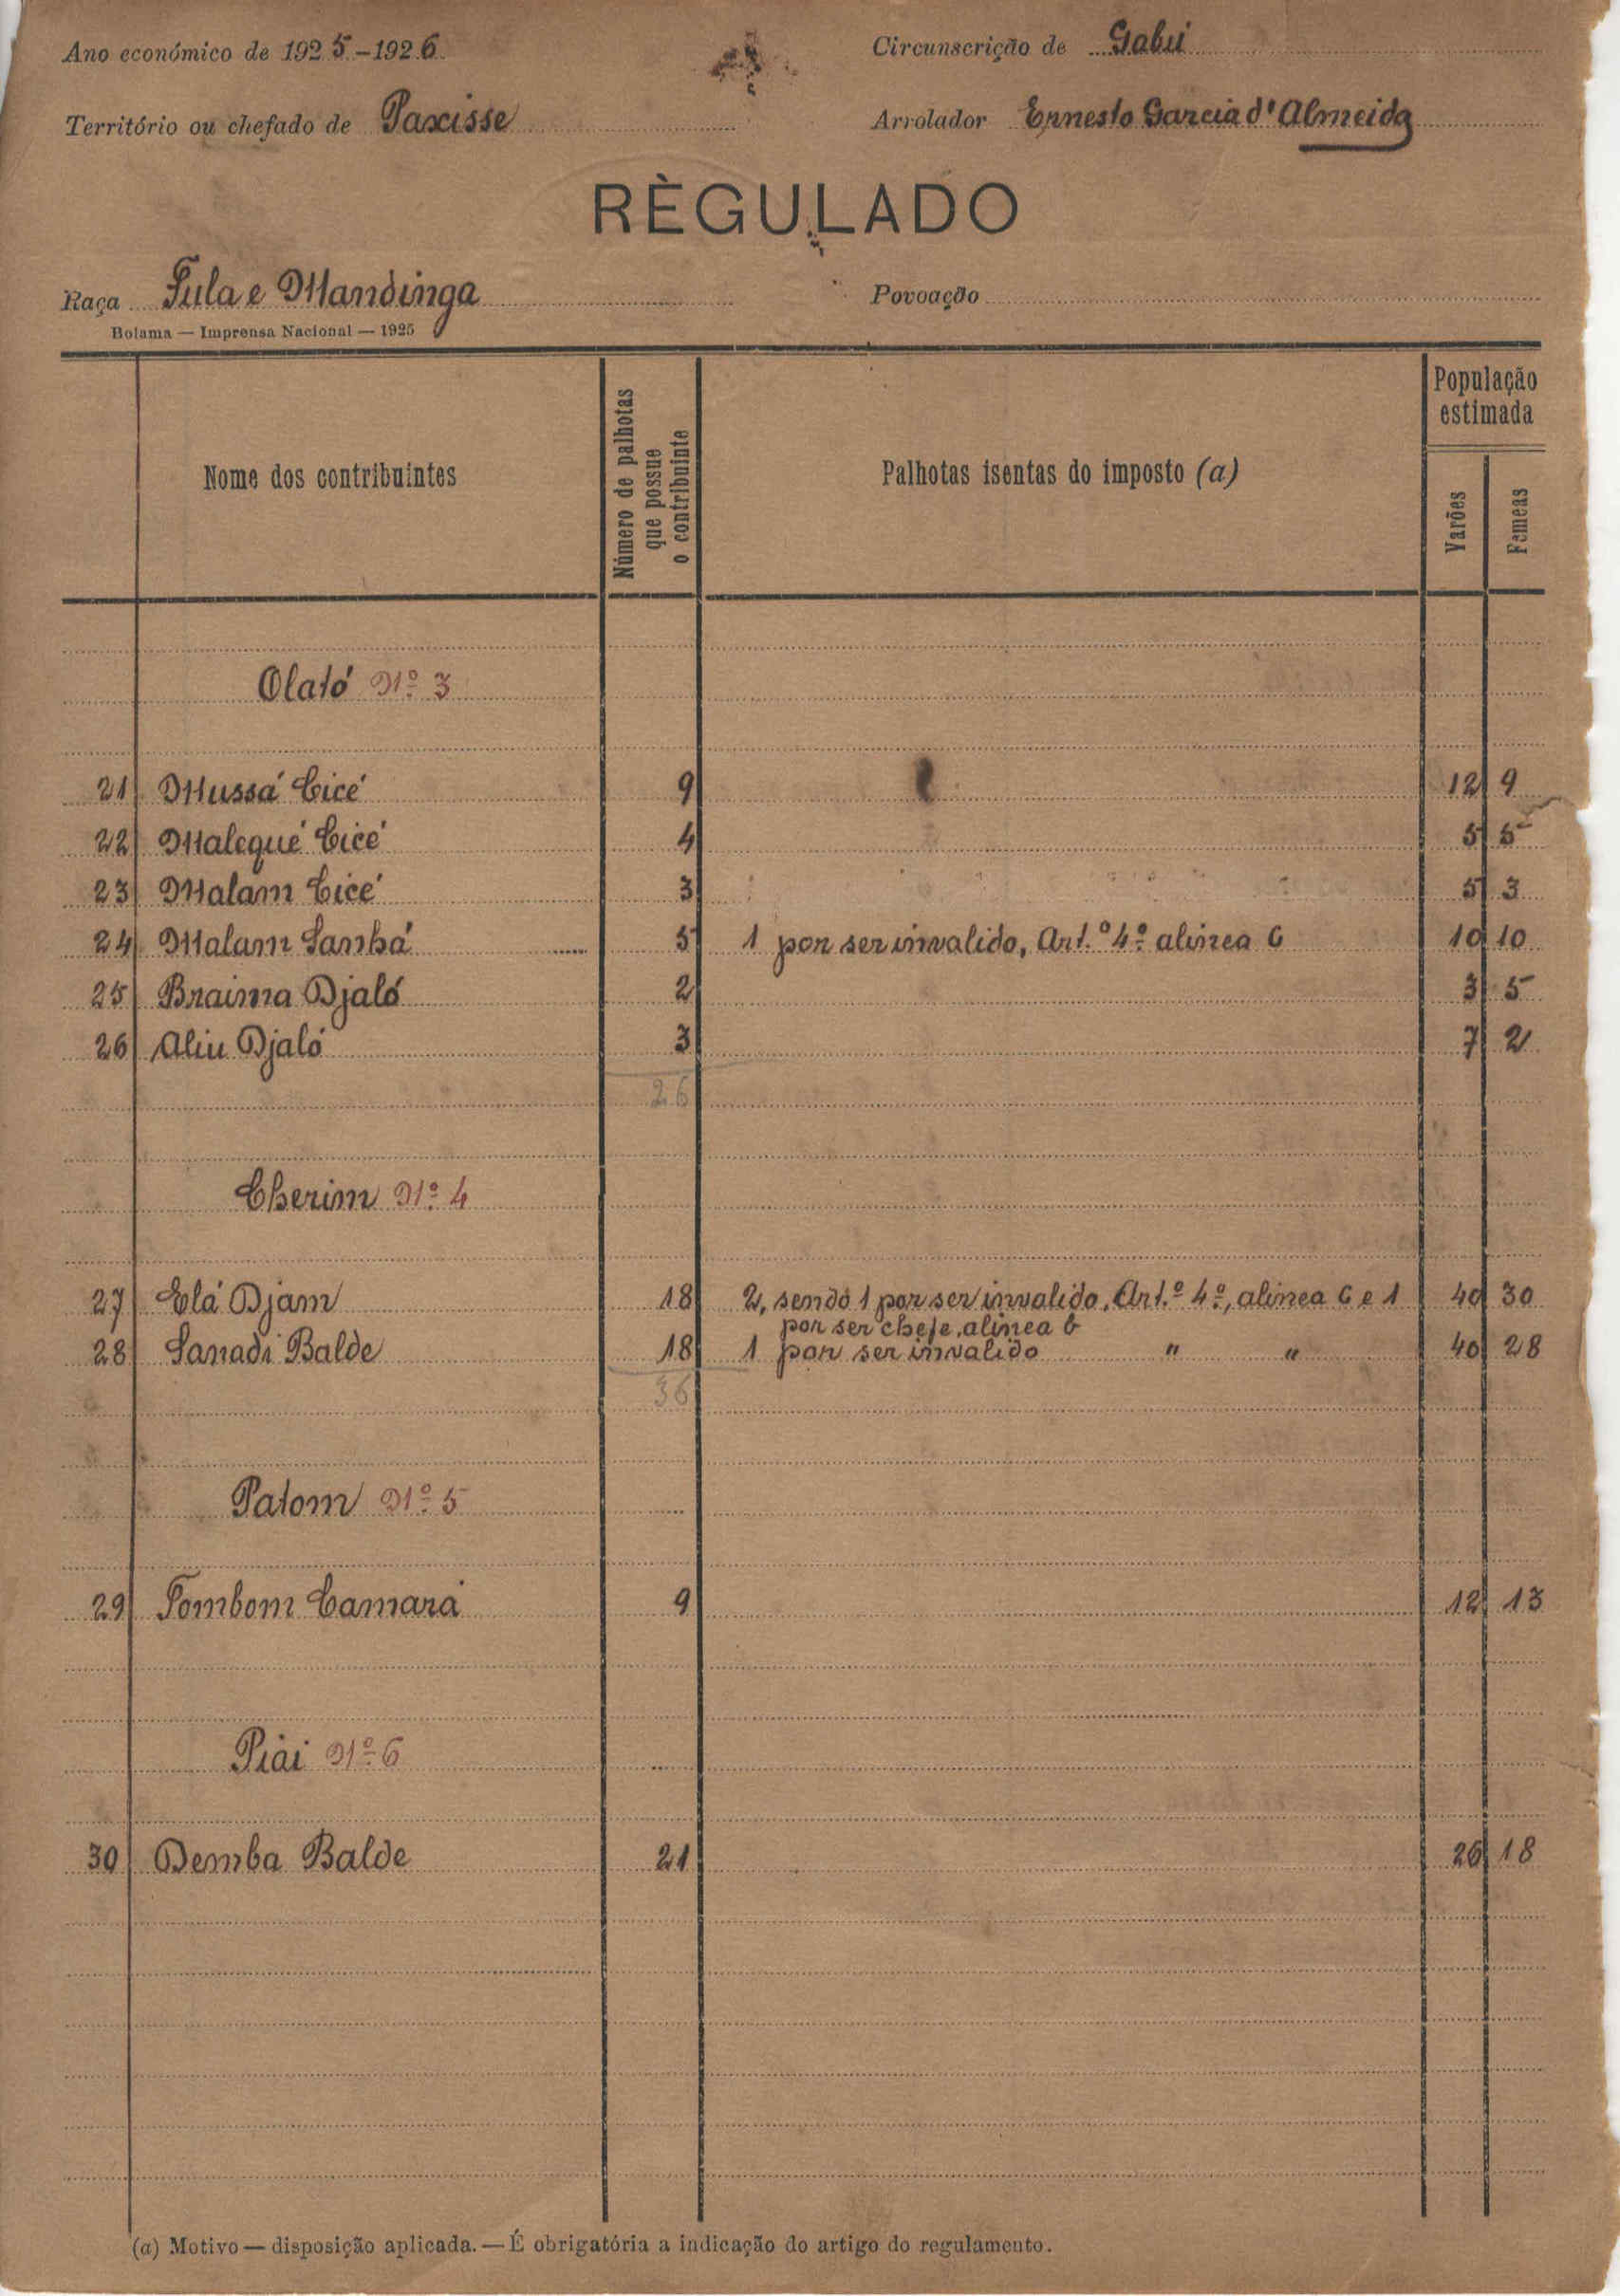 Ano económico de 1925-1926 Circunscrição de Gabú
Território ou chefado de Paxisse Arrolador Ernesto Garcia d'Almeida
RÈGULADO
Raça Fula e Mandinga Povoação
Bolama — Imprensa Nacional — 1925
Nome dos contribuintes Número de palhotas que possue o contribuinte Palhotas isentas do imposto (a) População estimada Varões Femeas
Olató Nº 3
21 Mussá Cicé 9 12 9
22 Malequé Cicé 4 5 5
23 Malam Cicé 3 5 3
24 Malam Sanhá 5 1 por ser invalido, Art.º 4º alinea C 10 10
25 Braima Djaló 2 3 5
26 Aliu Djaló 3 7 2
26
Cherim Nº 4
27 Elá Djam 18 2, sendo 1 por ser invalido, Art.º 4º, alinea C e 1 40 30
por ser chefe, alinea b
28 Sanadi Balde 18 1 por ser invalido " " 40 28
36
Patom Nº 5
29 Tombom Camará 9 12 13
Piai Nº 6
30 Demba Balde 21 26 18
(a) Motivo — disposição aplicada. — É obrigatória a indicação do artigo do regulamento.